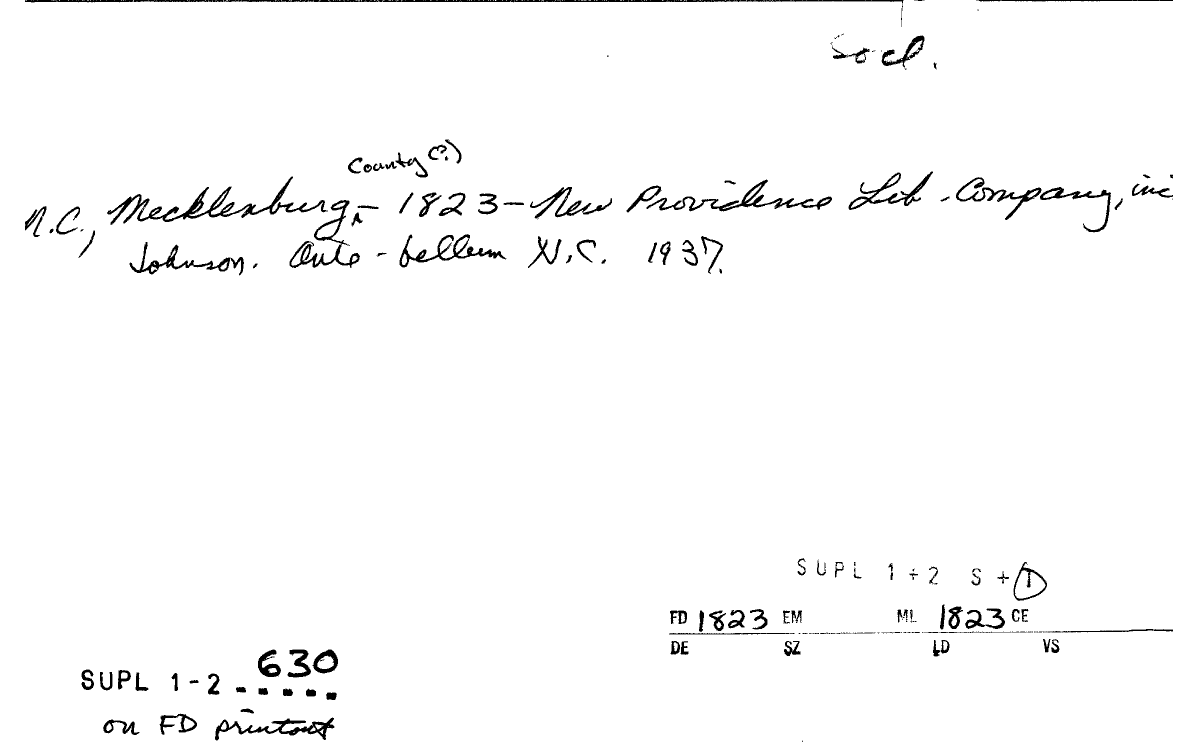 Socl.
County (?)
N.C., Mecklenburg, - 1823 - New Providence Lib. Company, inc
Johnson. Ante-bellum N.C. 1937.
SUPL 1+2 S+T
FD 1823 EM ML 1823 CE
DE SZ LD VS
SUPL 1-2 630
on FD printout